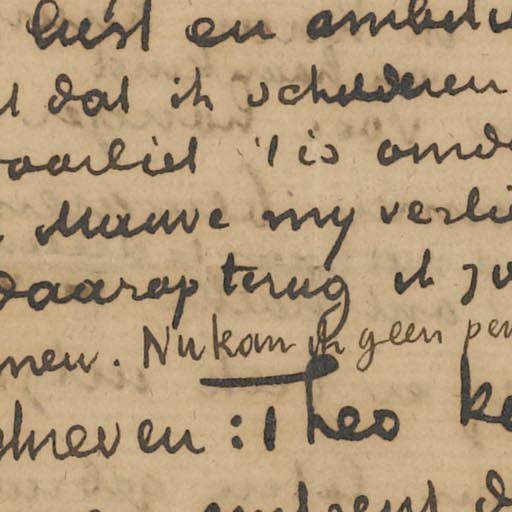 lust en ambitie
dat ik schilderen
voorliet 't is omd
Mauve mij verlie
daarop terug ik zo
nen. Nu kan ik geen pen
chreven: Theo ke
omtrent d